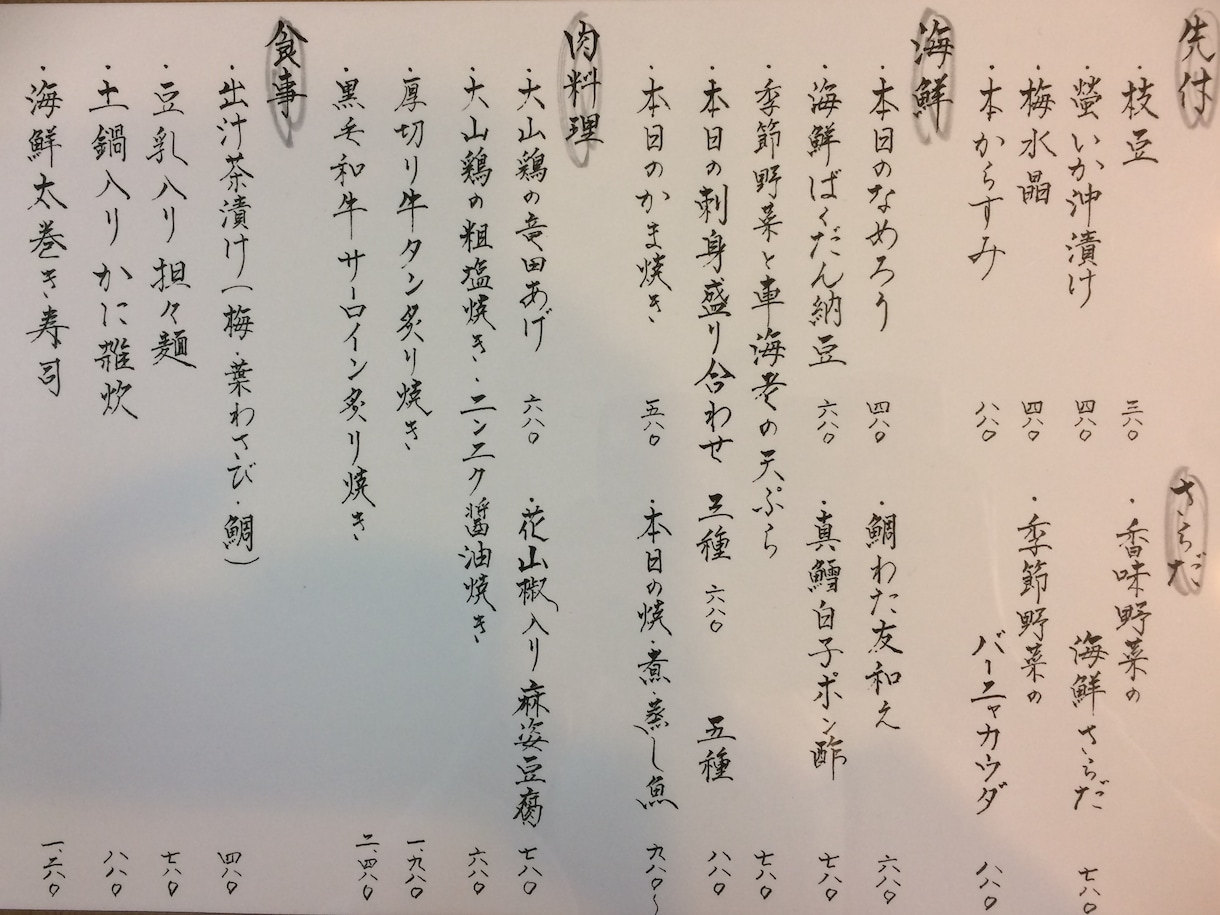 先付
・枝豆 三八〇
・螢いか沖漬け 四八〇
・梅水晶 四八〇
・本からすみ 八八〇
さらだ
・香味野菜の
海鮮さらだ 七八〇
・季節野菜の
バーニャカウダ 八八〇
海鮮
・本日のなめろう 四八〇 ・鯛わた友和え 六八〇
・海鮮ばくだん納豆 六八〇 ・真鱈白子ポン酢 七八〇
・季節野菜と車海老の天ぷら 七八〇
・本日の刺身盛り合わせ 三種 六八〇 五種 八八〇
・本日のかま焼き 五八〇 ・本日の焼・煮・蒸し魚 九八〇〜
肉料理
・大山鶏の竜田あげ 六八〇 ・花山椒入り麻婆豆腐 七八〇
・大山鶏の粗塩焼き・ニンニク醤油焼き 六八〇
・厚切り牛タン炙り焼き 一、九八〇
・黒毛和牛サーロイン炙り焼き 二、四八〇
食事
・出汁茶漬け(梅・葉わさび・鯛) 四八〇
・豆乳入り担々麺 七八〇
・土鍋入りかに雑炊 八八〇
・海鮮太巻き寿司 一、二八〇